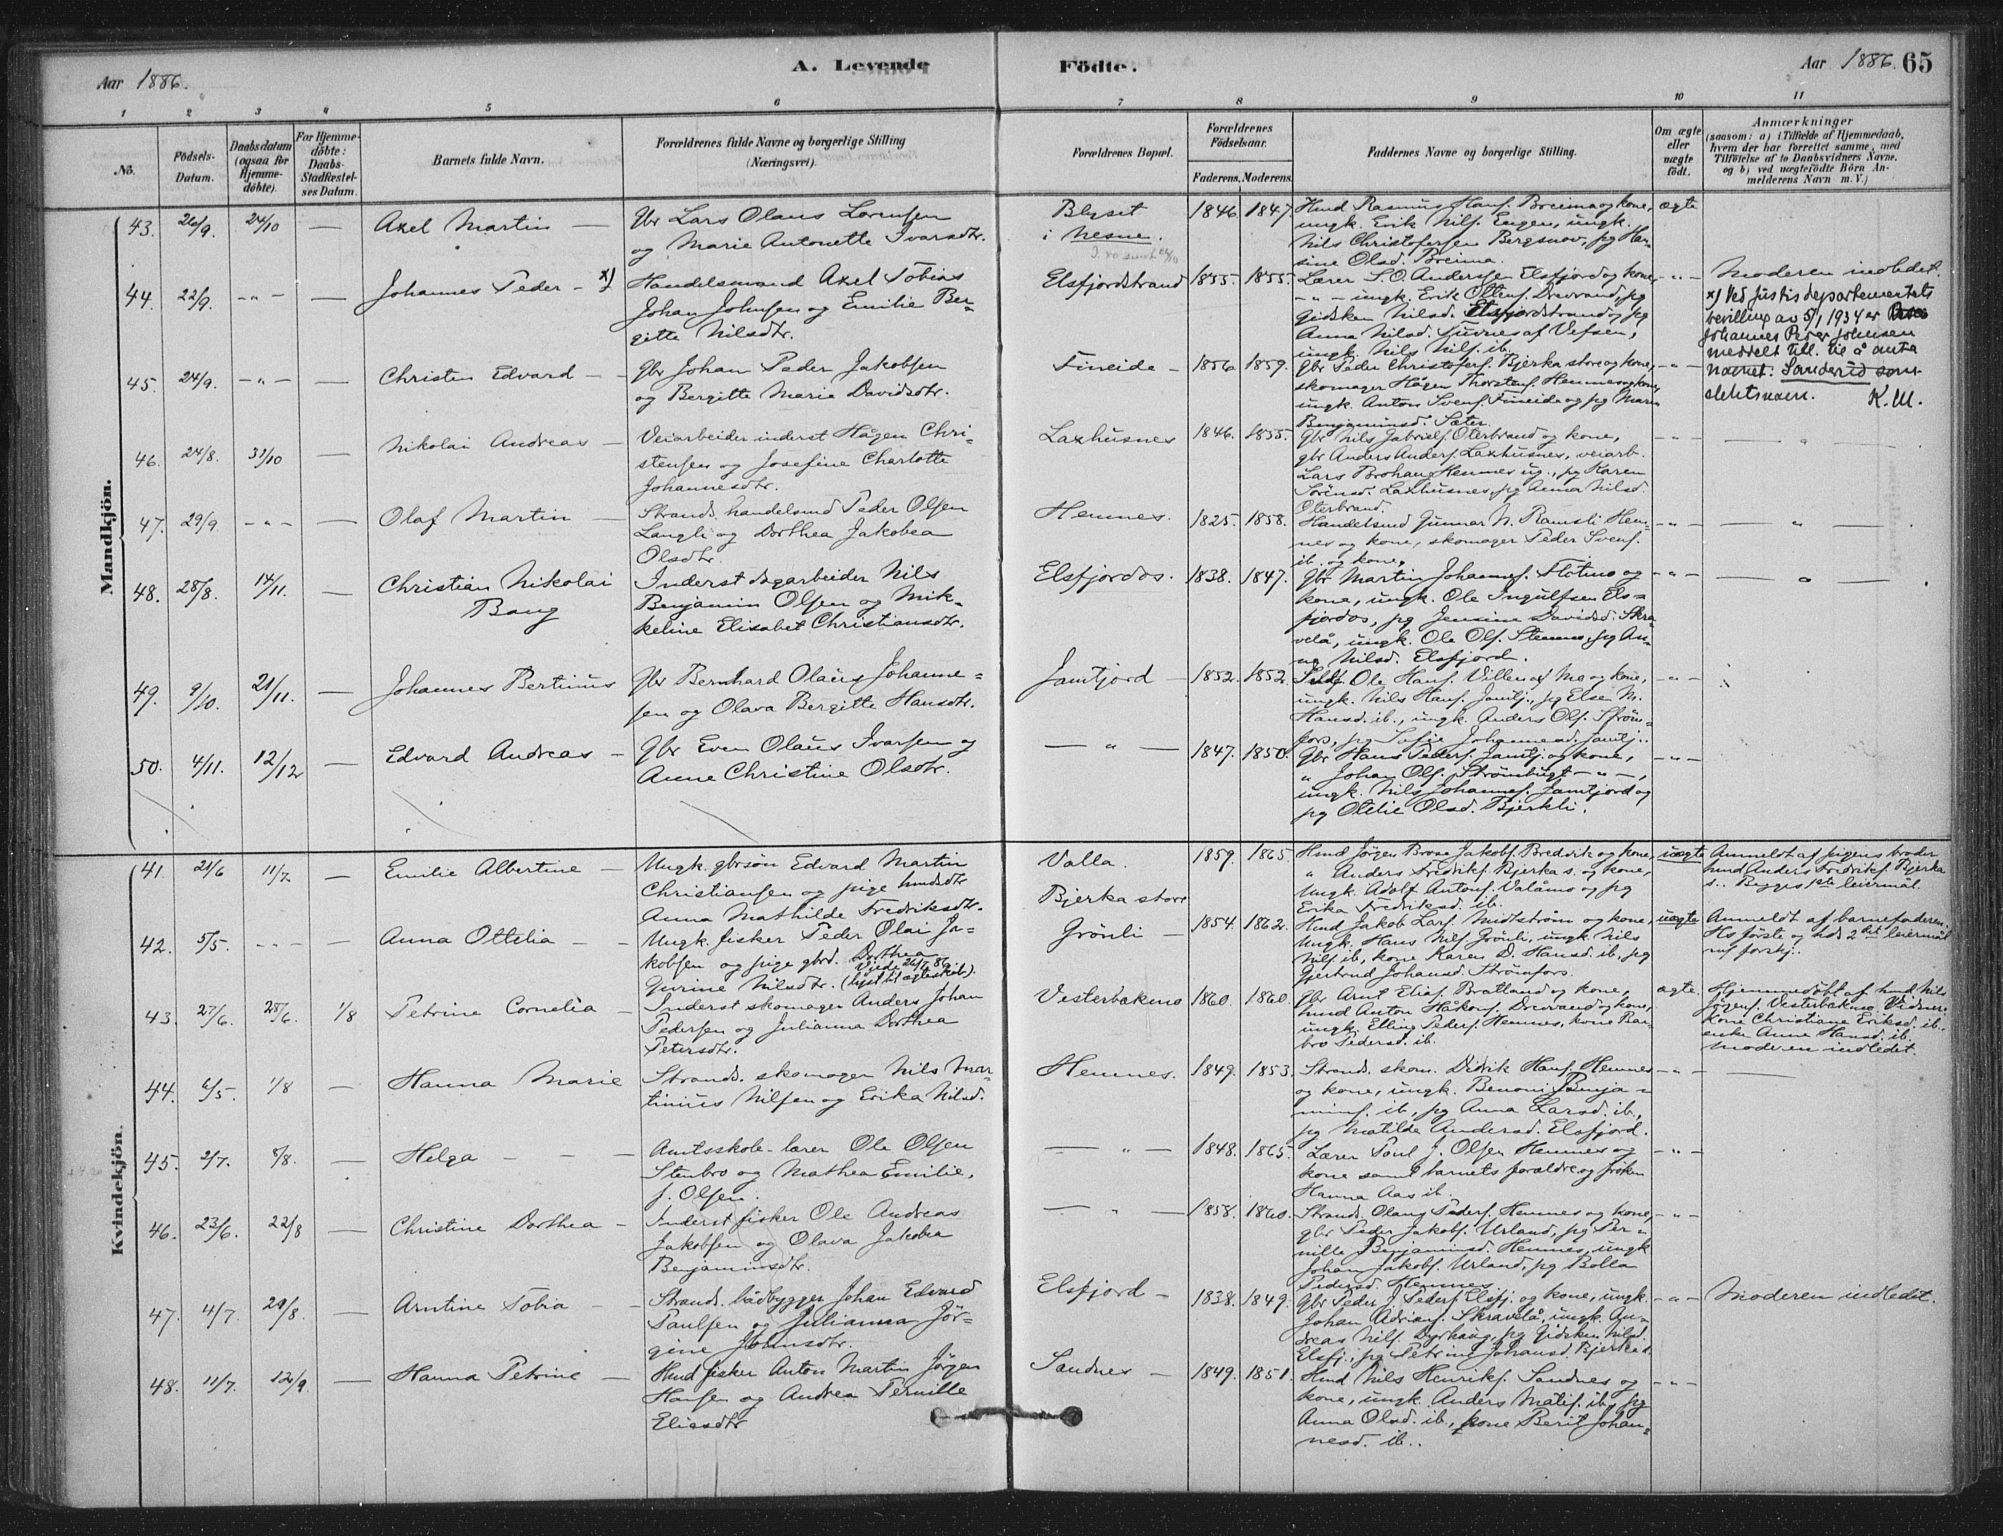 Aar 1886.
A. Levende
Födte.
Aar 1886. 65
1 2 3 4 5 6 7 8 9 10 11
No.
Födsels-
Datum.
Daabsdatum
(ogsaa for
Hjemme-
döbte).
For Hjemme-
döbte:
Daabs-
Stadfæstel-
ses Datum.
Barnets fulde Navn.
Forældrenes fulde Navne og borgerlige Stilling
(Næringsvei).
Forældrenes Bopæl.
Forældrenes
Födselsaar.
Faderens. Moderens.
Faddernes Navne og borgerlige Stilling.
Om ægte
eller
uægte
födt.
Anmærkninger
(saasom: a) i Tilfælde af Hjemmedaab,
hvem der har forrettet samme, med
Tilföielse af to Daabsvidners Navne.
og b) ved uægtefödte Börn An-
melderens Navn m. V.)
Mandkjön.
43. 26/9. 24/10 — Axel Martin —
Gbr Lars Olaus Lorensen
og Marie Antonette Ivarsdtr.
Blyset
i Nesne.
1846. 1847.
Hmd Rasmus Hans. Breima og kone,
ungk. Erik Nils. Engen, ungk.
Nils Christofersen Bergsnov, pg Han-
sine Olsd. Breima.
ægte
44. 22/9. - " - — Johannes Peder - x)
Handelsmand Axel Tobias
Johan Johnsen og Emilie Ber-
gitte Nilsdtr.
Elsfjordstrand
1855. 1855.
Lærer S. O. Anderssen Elsfjord og kone,
- " - ungk. Erik Ottens. Drevvand, pg
Gidsken Nilsd. Elsfjordstrand og pg
Anna Nilsd. af Vefsen,
ungk. Nils Nils. ib.
- " -
Moderen indledet.
x) Ved Justisdepartementets
bevilling av 5/1 1934 er
Johannes Peder Johnsen
meddelt till. til å anta
navnet: Sanderud som
slektsnavn. K.M.
45. 24/9. - " - — Christen Edvard —
Gbr Johan Peder Jakobsen
og Bergitte Marie Davidsdtr.
Fineide —
1856. 1859.
Gbr Peder Christofers. Bjerka store og kone,
skomager Hågen Thorstens. Hemnes og kone,
ungk. Anton Svens. Fineide og pg Maren
Benjaminsd. Sæter.
- " -
46. 24/8. 31/10 — Nikolai Andreas —
Veiarbeider inderst Hågen Chri-
stensen og Josefine Charlotte
Johannesdtr.
Laxhusnes
1846. 1855.
Gbr Nils Gabriels. Oterbrand og kone,
gbr Anders Anders. Laxhusnes, veiarb.
Lars Brohaug Hemnes ug., pg Karen
Sörensd. Laxhusnes, pg Anna Nilsd.
Oterbrand.
- " -
— " —
47. 29/9. - " - — Olaf Martin —
Strands. handelsmd Peder Olsen
Langli og Dorthea Jakobea
Olsdtr.
Hemnes.
1825. 1858.
Handelsmd Gunnar N. Ramsli Hem-
nes og kone, skomager Peder Svens.
ib. og kone.
- " -
— " —
48. 28/8. 14/11. — Christian Nikolai
Bang
Inderst dagarbeider Nils
Benjamin Olsen og Mik-
keline Elisabet Christiansdtr.
Elsfjordos.
1838. 1847.
Gbr Martin Johannes. Flotmo og
kone, ungk. Ole Ingulfsen Els-
fjordos, pg Jensine Davidsd. Skra-
velå, ungk. Ole Ols. Stemmo, pg An-
na Nilsd. Elsfjord.
- " -
— " —
49. 9/10. 21/11. — Johannes Bertinus
Gbr Bernhard Olaus Johanne-
sen og Olava Bergitte Hansdtr.
Jamtjord —
1852. 1852.
Ole Hans. Villen af Mo og kone,
ungk. Nils Hans. Jamtj., pg Else M.
Hansd. ib., ungk. Anders Ols. Ström-
fors, pg Sofie Johannesd. Jamtj..
- " -
50. 4/11. 12/12 — Edvard Andreas —
Gbr Even Olaus Ivarsen og
Anne Christine Olsdtr.
— " —
1847. 1850.
Gbr Hans Peders. Jamtj. og kone,
" Johan Ols. Strömbugt - " -,
ungk. Nils Johannes. Jamtjord og
pg Otilie Olsd. Bjerkli.
- " -
Kvindekjön.
41. 21/6 11/7 — Emilie Albertine —
Ungk. gbrsön Edvard Martin
Christiansen og pige hmdsdtr
Anna Mathilde Fredriksdtr.
Valla.
Bjerka store
1859. 1865.
Hmd Jörgen Brose Jakobs. Bredvik og kone,
" Anders Fredriks. Bjerka s. og kone,
Ungk. Adolf Antons. Valåmo og pg
Erika Fredriksd. ib.
uægte
Anmeldt af pigens broder
hmd Anders Fredriks. Bjerka
s.. Begges 1ste leiermål.
42. 5/5. - " - — Anna Ottilia — —
Ungk. fisker Peder Olai Ja-
kobsen og pige gbrd. Dorthea
Gurine Nilsdtr.
Grönli —
1854. 1862.
Hmd Jakob Lars. Midtström og kone,
Ungk. Hans Nils. Grönli, ungk. Nils
Nils. ib, kone Karen D. Hansd. ib, pg
Gjertrud Johansd. Strömfors.
uægte
Anmeldt af barnefaderen.
Hs förste og hds 2det leiermål
43. 27/6. 28/6. 1/8 Petrine Cornelia —
Inderst skomager Anders Johan
Pedersen og Julianna Dorthea
Petersdtr.
Vesterbækmo
1860. 1860.
Gbr Arnt Elias. Bratland og kone,
hmd Anton Håkons. Drevvand og kone,
ungk. Elling Peders. Hemnes, kone Bar-
bro Pedersd. ib.
ægte.
Hjemmedöbt af hmd Nils
Jörgens. Vesterbækmo. Vidner:
kone Christiane Eriksd. ib.,
enke Anne Hansd. ib.
Moderen indledet.
44. 6/5. 1/8 — Hanna Marie
Strands. skomager Nils Mar-
tinius Nilsen og Erika Nilsd.
Hemnes.
1849. 1853.
Strands. skom. Didrik Hans. Hemnes
og kone, ungk. Benoni Benja-
mins. ib, pg Anna Larsd. ib.,
pg Matilde Andersd. Elsfjord.
- " -
45. 2/7. 8/8. — Helga — — —
Amtsskole-lærer Ole Olsen
Stenbro og Mathea Emilie,
f. Olsen.
— " —
1848. 1865.
Lærer Poul J. Olsen Hemnes og
kone samt barnets forældre og fröken
Hanna Aas ib.
- " -
46. 23/6. 22/8 — Christine Dorthea —
Inderst fisker Ole Andreas
Jakobsen og Olava Jakobea
Benjaminsdtr.
— " —
1858. 1860.
Strands. Olaus Peders. Hemnes og kone,
gbr Peder Jakobs. Urland, pg Per-
nille Benjaminsd. Hemnes, ungk.
Johan Jakobs. Urland, pg Bolla
Pedersd. Hemnes
- " -
47. 4/7. 29/8. — Arntine Tobia —
Strands. bådbygger Johan Edvard
Paulsen og Julianna Jör-
gine Johnsdtr.
Elsfjord —
1838. 1849.
Gbr Peder J. Peders. Elsfj. og kone, ungk.
Johan Adrians. Skravelå, ungk. An-
dreas Nils. Dyrhaug, pg Gidsken Nilsd.
Elsfj., pg Petrine Johansd. Bjerka s.
- " -
Moderen indledet.
48. 11/7. 12/9. — Hanna Petrine —
Hmd fisker Anton Martin Jörgen
Hansen og Andrea Pernille
Eliasdtr
Sandnes —
1849. 1851.
Hmd Nils Henriks. Sandnes og
kone, ungk. Anders Matis. ib., pg
Anna Olsd. ib., kone Berit Johan-
nesd. ib..
- " -